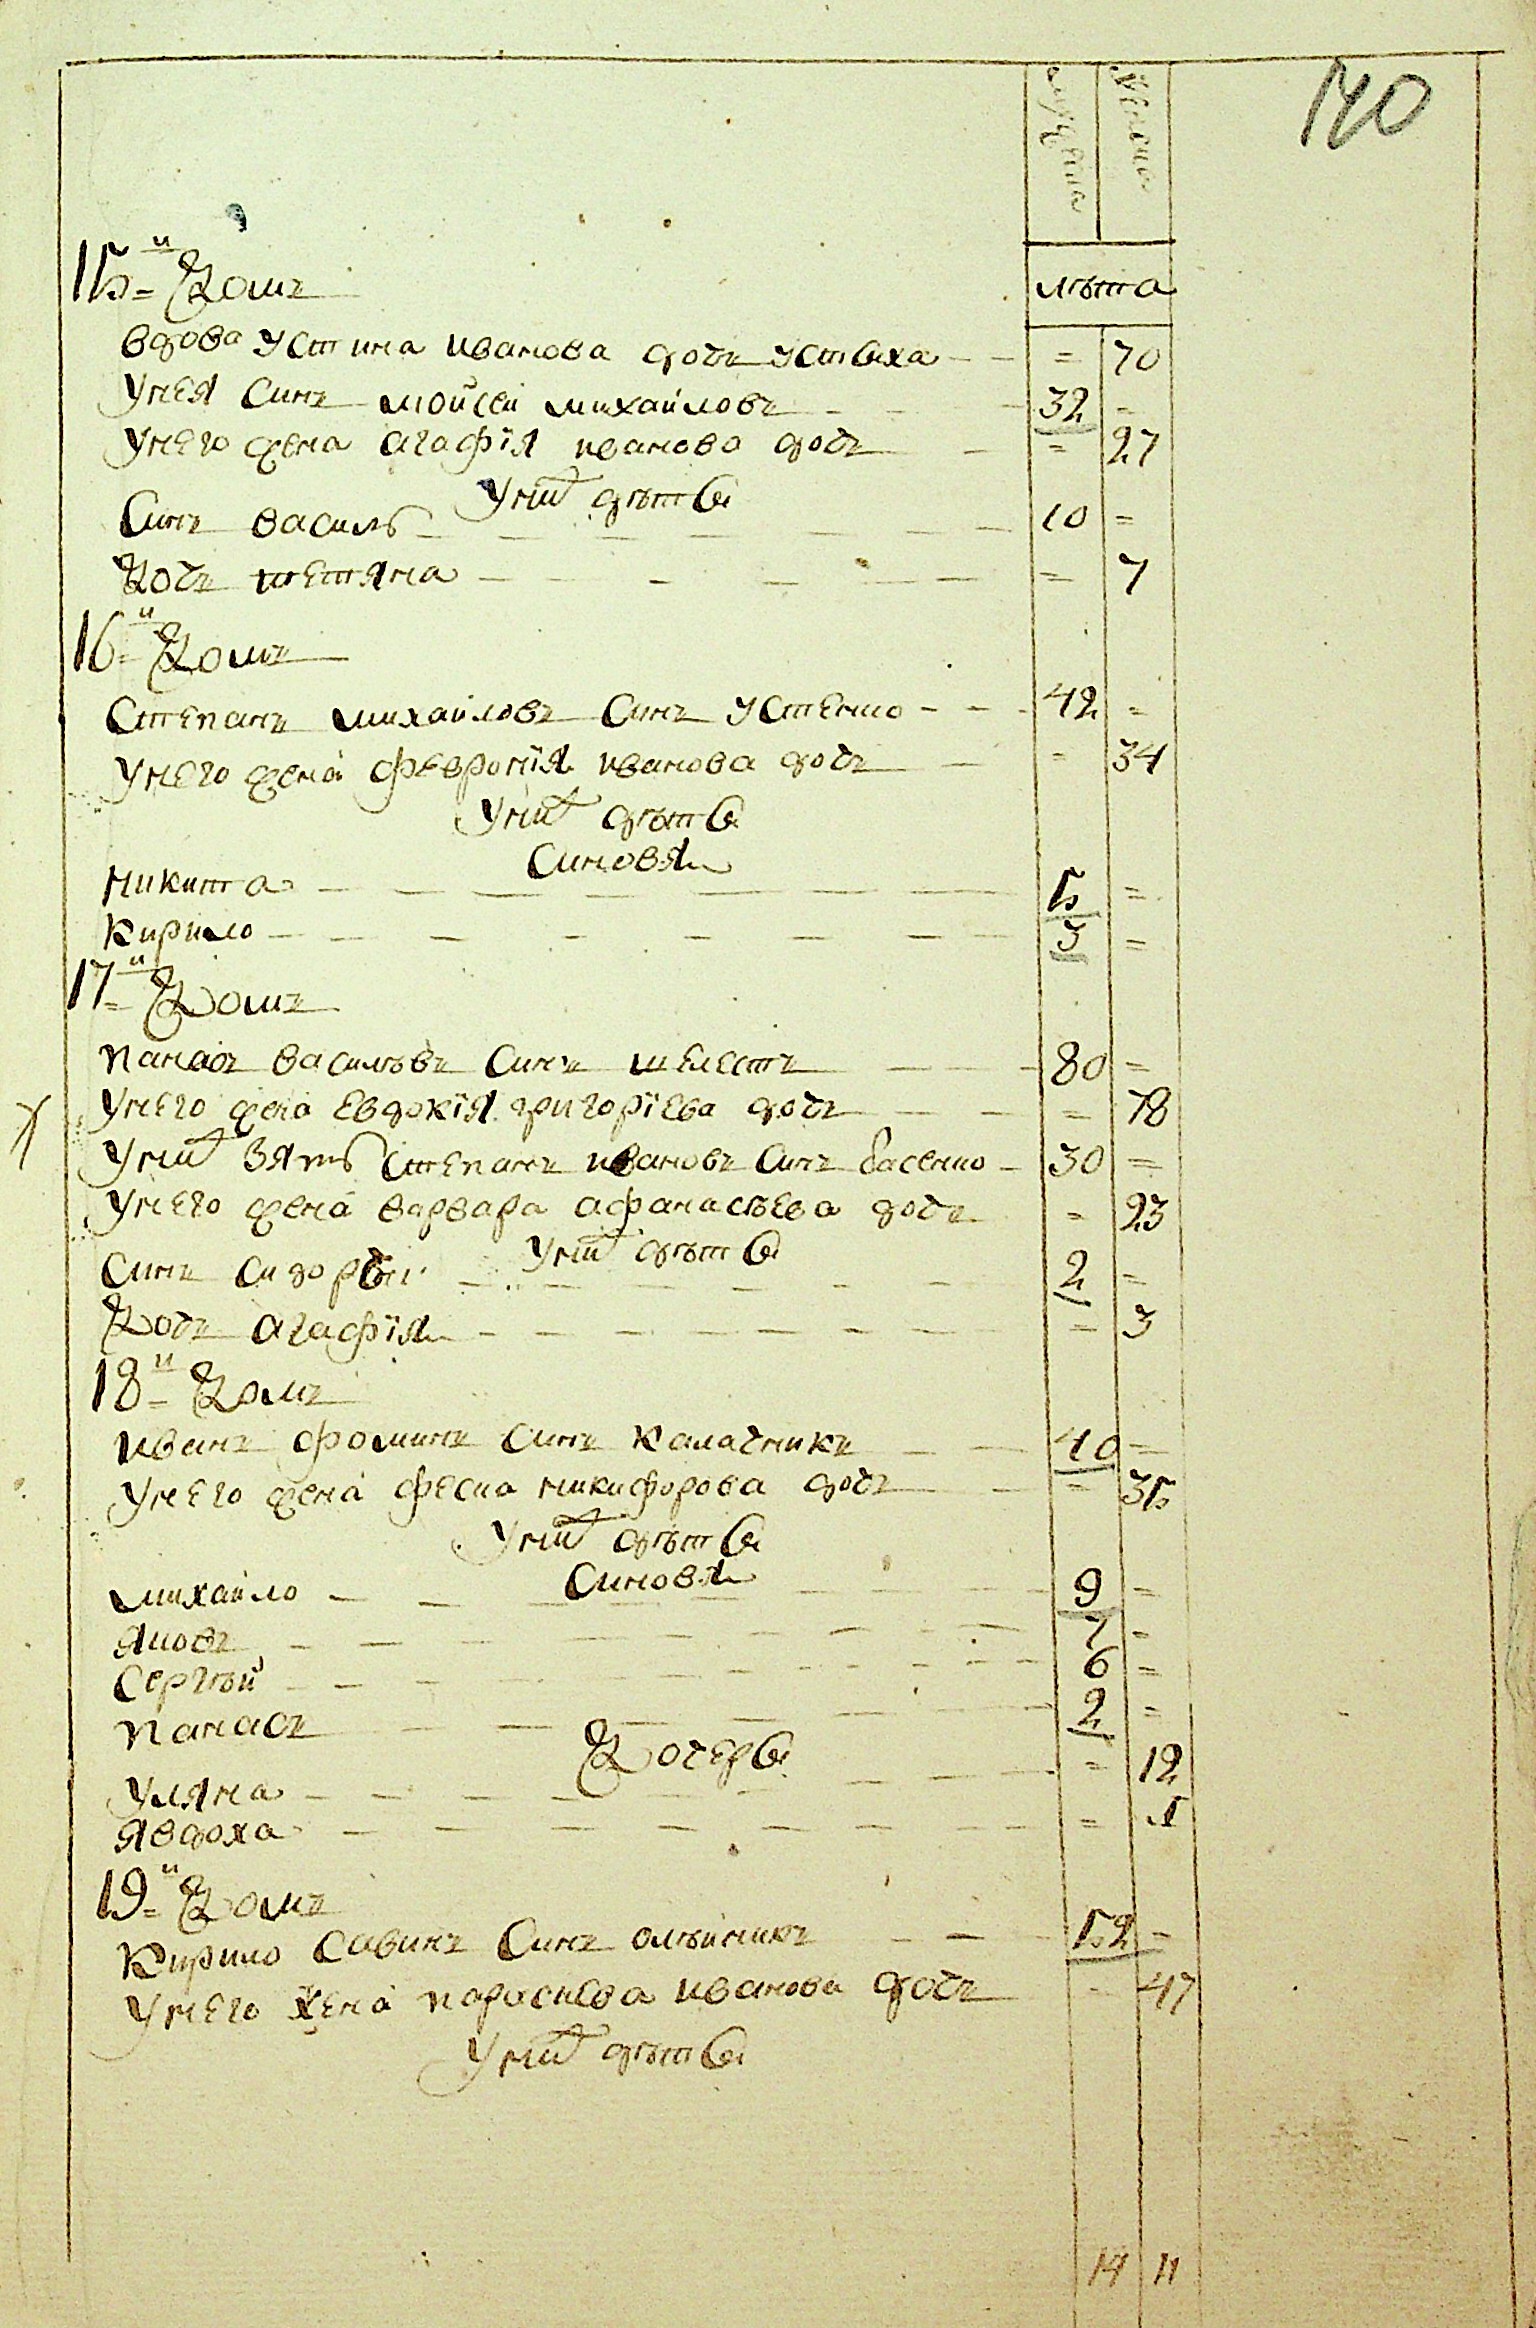 140
мужеска женска
15-й Домъ
лѣта
вдова устина иванова дочъ уствиха - - = 70
Унея синъ мойсей михайловъ - - - 32 =
Унего жена агафїя иванова дочъ - = 27
Унихъ дѣтѣи
Синъ василь - - - - - - 10 =
Дочъ тетяна - - - - - = 7
16-й Домъ
Степанъ михайловъ синъ устенко - - - 42 =
Унего жена февронїя иванова дочъ - = 34
Унихъ дѣтѣи
Синовя
никита - - - - - - - 5 =
кирило - - - - - - - - 3 =
17-й Домъ
панасъ василѣвъ синъ шелестъ - - - 80 =
Унего жена евдокїя григорїева дочъ - - - = 78
Унихъ зять степанъ ивановъ синъ басенко - 30 =
Унего жена варвара афанасѣева дочъ = 23
Унихъ дѣтѣи
Синъ сидоръ - - - - - - 2 =
Дочъ агафїя - - - - - - - - = 3
18-й Домъ
иванъ фоминъ синъ калачникъ - - 40 =
Унего жена феска никифорова дочъ - - = 35
Унихъ дѣтѣи
Синовя
михайло - - - - - - - 9 =
яковъ - - - - - - - - - 7 =
Сергѣй - - - - - - - - - 6 =
панасъ - - - - - - - 2 =
Дочерѣи
уляна - - - - - - - - = 12
явдоха - - - - - - - - =
19-й Домъ
кирило савинъ синъ олѣйникъ - - - 52 =
Унего жена параскева иванова дочъ - 47
Унихъ дѣтѣи
14 11